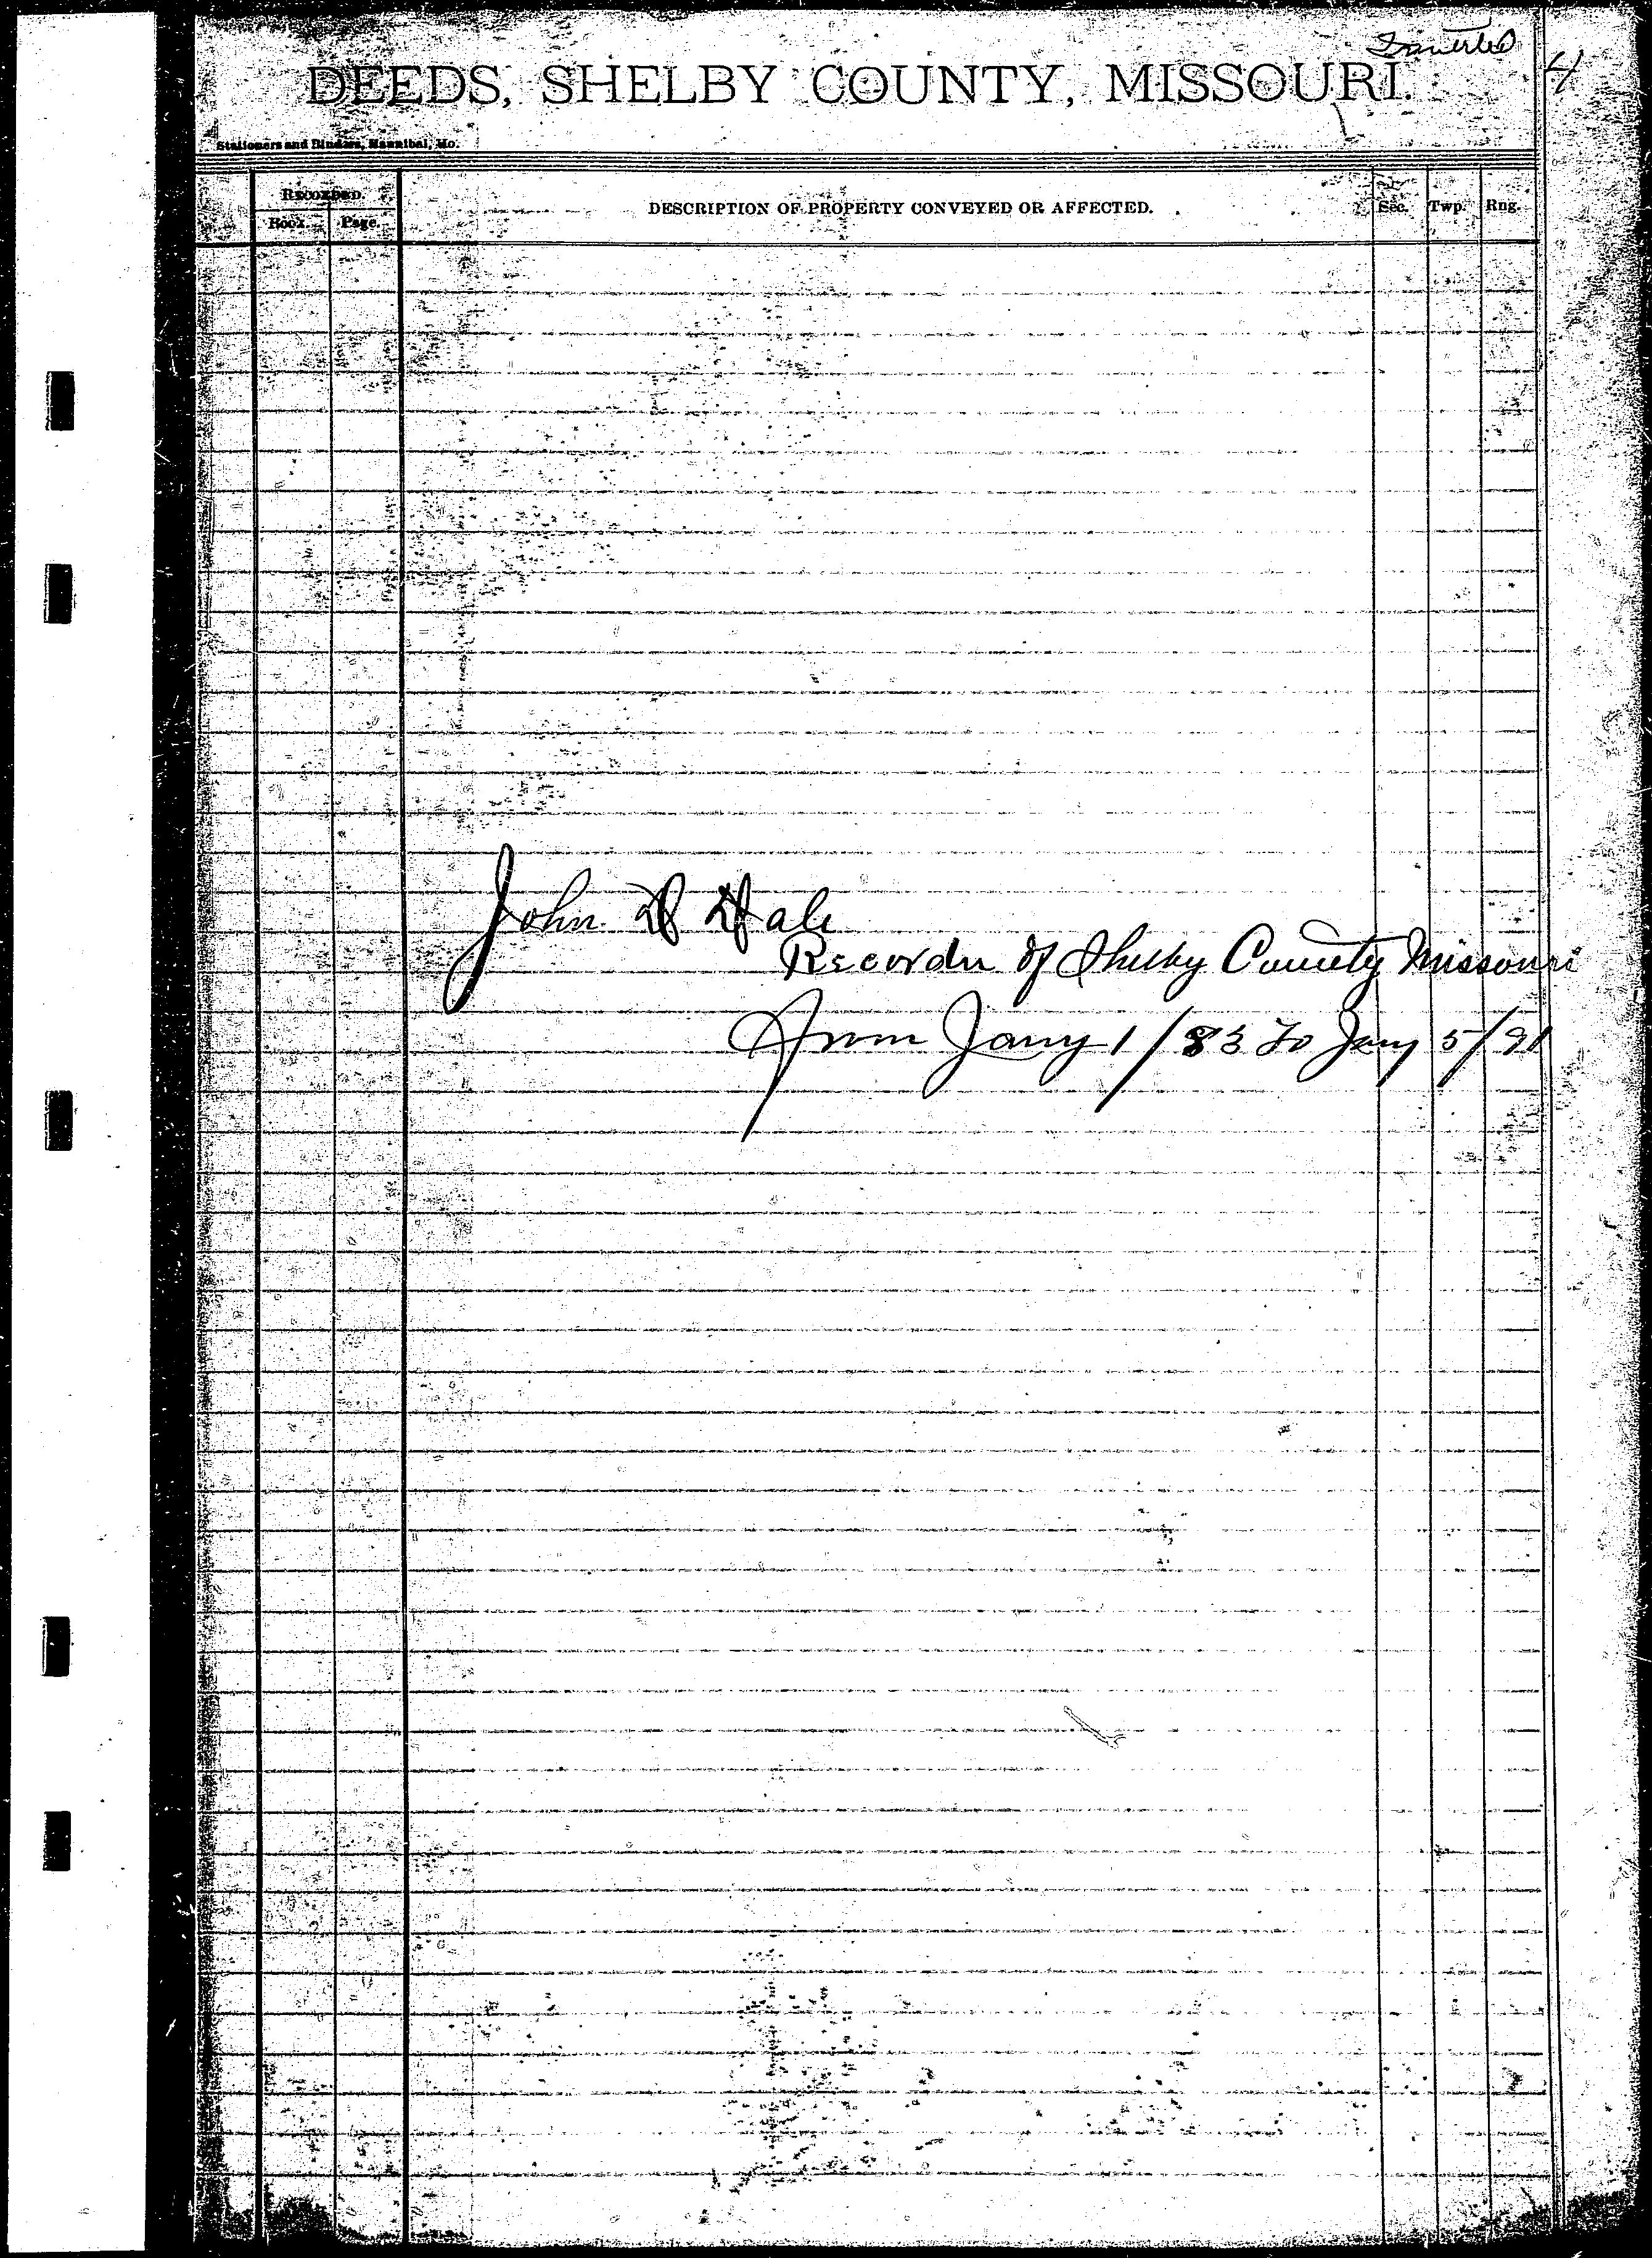 Inverted
4
DEEDS, SHELBY COUNTY, MISSOURI.
Stationers and Binders, Hannibal, Mo.
Recorded.
Book. Page.
DESCRIPTION OF PROPERTY CONVEYED OR AFFECTED.
Sec. Twp. Rng.
John D Dale
Recorder of Shelby County Missouri
From Jany 1/83 To Jany 5/91